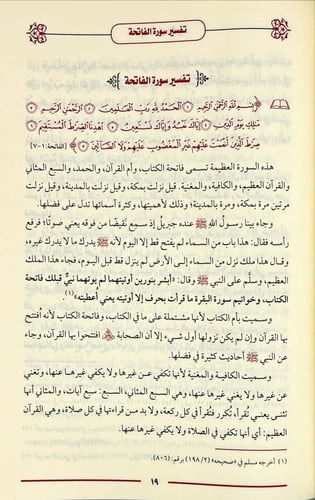 تفسير سورة الفاتحة
تفسير سورة الفاتحة
﴿بِسْمِ اللَّهِ الرَّحْمَٰنِ الرَّحِيمِ ۝ الْحَمْدُ لِلَّهِ رَبِّ الْعَالَمِينَ ۝ الرَّحْمَٰنِ الرَّحِيمِ ۝
مَالِكِ يَوْمِ الدِّينِ ۝ إِيَّاكَ نَعْبُدُ وَإِيَّاكَ نَسْتَعِينُ ۝ اهْدِنَا الصِّرَاطَ الْمُسْتَقِيمَ ۝
صِرَاطَ الَّذِينَ أَنْعَمْتَ عَلَيْهِمْ غَيْرِ الْمَغْضُوبِ عَلَيْهِمْ وَلَا الضَّالِّينَ ۝﴾ [الفاتحة: ١-٧]
هذه السورة العظيمة تسمى فاتحة الكتاب، وأم القرآن، والحمد، والسبع المثاني
والقرآن العظيم، والكافية، والمغنية. قيل نزلت بمكة، وقيل نزلت بالمدينة، وقيل نزلت
مرتين مرة بمكة، ومرة بالمدينة؛ وذلك لأهميتها، وكثرة أسمائها تدل على فضلها.
وجاء بينا رسول الله ﷺ عنده جبريل إذ سمع نَقيضًا من فوقه يعني صوتًا؛ فرفع
رأسه فقال: هذا باب من السماء لم يفتح قط إلا اليوم لأنه ﷺ يدرك ما لا يدرك غيره،
وقال هذا ملك نزل من السماء إلى الأرض لم ينزل قط قبل اليوم، فجاء هذا الملك
العظيم، وسلَّم على النبي ﷺ وقال: «أبشر بنورين أوتيتهما لم يؤتهما نبيٌّ قبلك فاتحة
الكتاب، وخواتيم سورة البقرة ما قرأت بحرف إلا أوتيته يعني أعطيته»(١)
وسميت بأم الكتاب لأنها مشتملة على ما في الكتاب، وفاتحة الكتاب لأنه افتتح
بها القرآن وإن لم يكن نزولها أول شيء إلا أن الصحابة افتتحوا بها القرآن، وجاء
عن النبي ﷺ أحاديث كثيرة في فضلها.
وسميت الكافية والمغنية لأنها تكفي عن غيرها ولا يكفي غيرها عنها، وتغني
عن غيرها ولا يغني غيرها عنها، وهي السبع المثاني، السبع: سبع آيات، والمثاني أنها
تثنى يعني تُقرأ، تُكرر فتُقرأ في كل ركعة، ولا بد من قراءتها في كل صلاة، وهي القرآن
العظيم: أي أنها تكفي في الصلاة ولا يكفي غيرها عنها.
(١) أخرجه مسلم في «صحيحه» (١٩٨/٢) برقم: (٨٠٦).
١٩